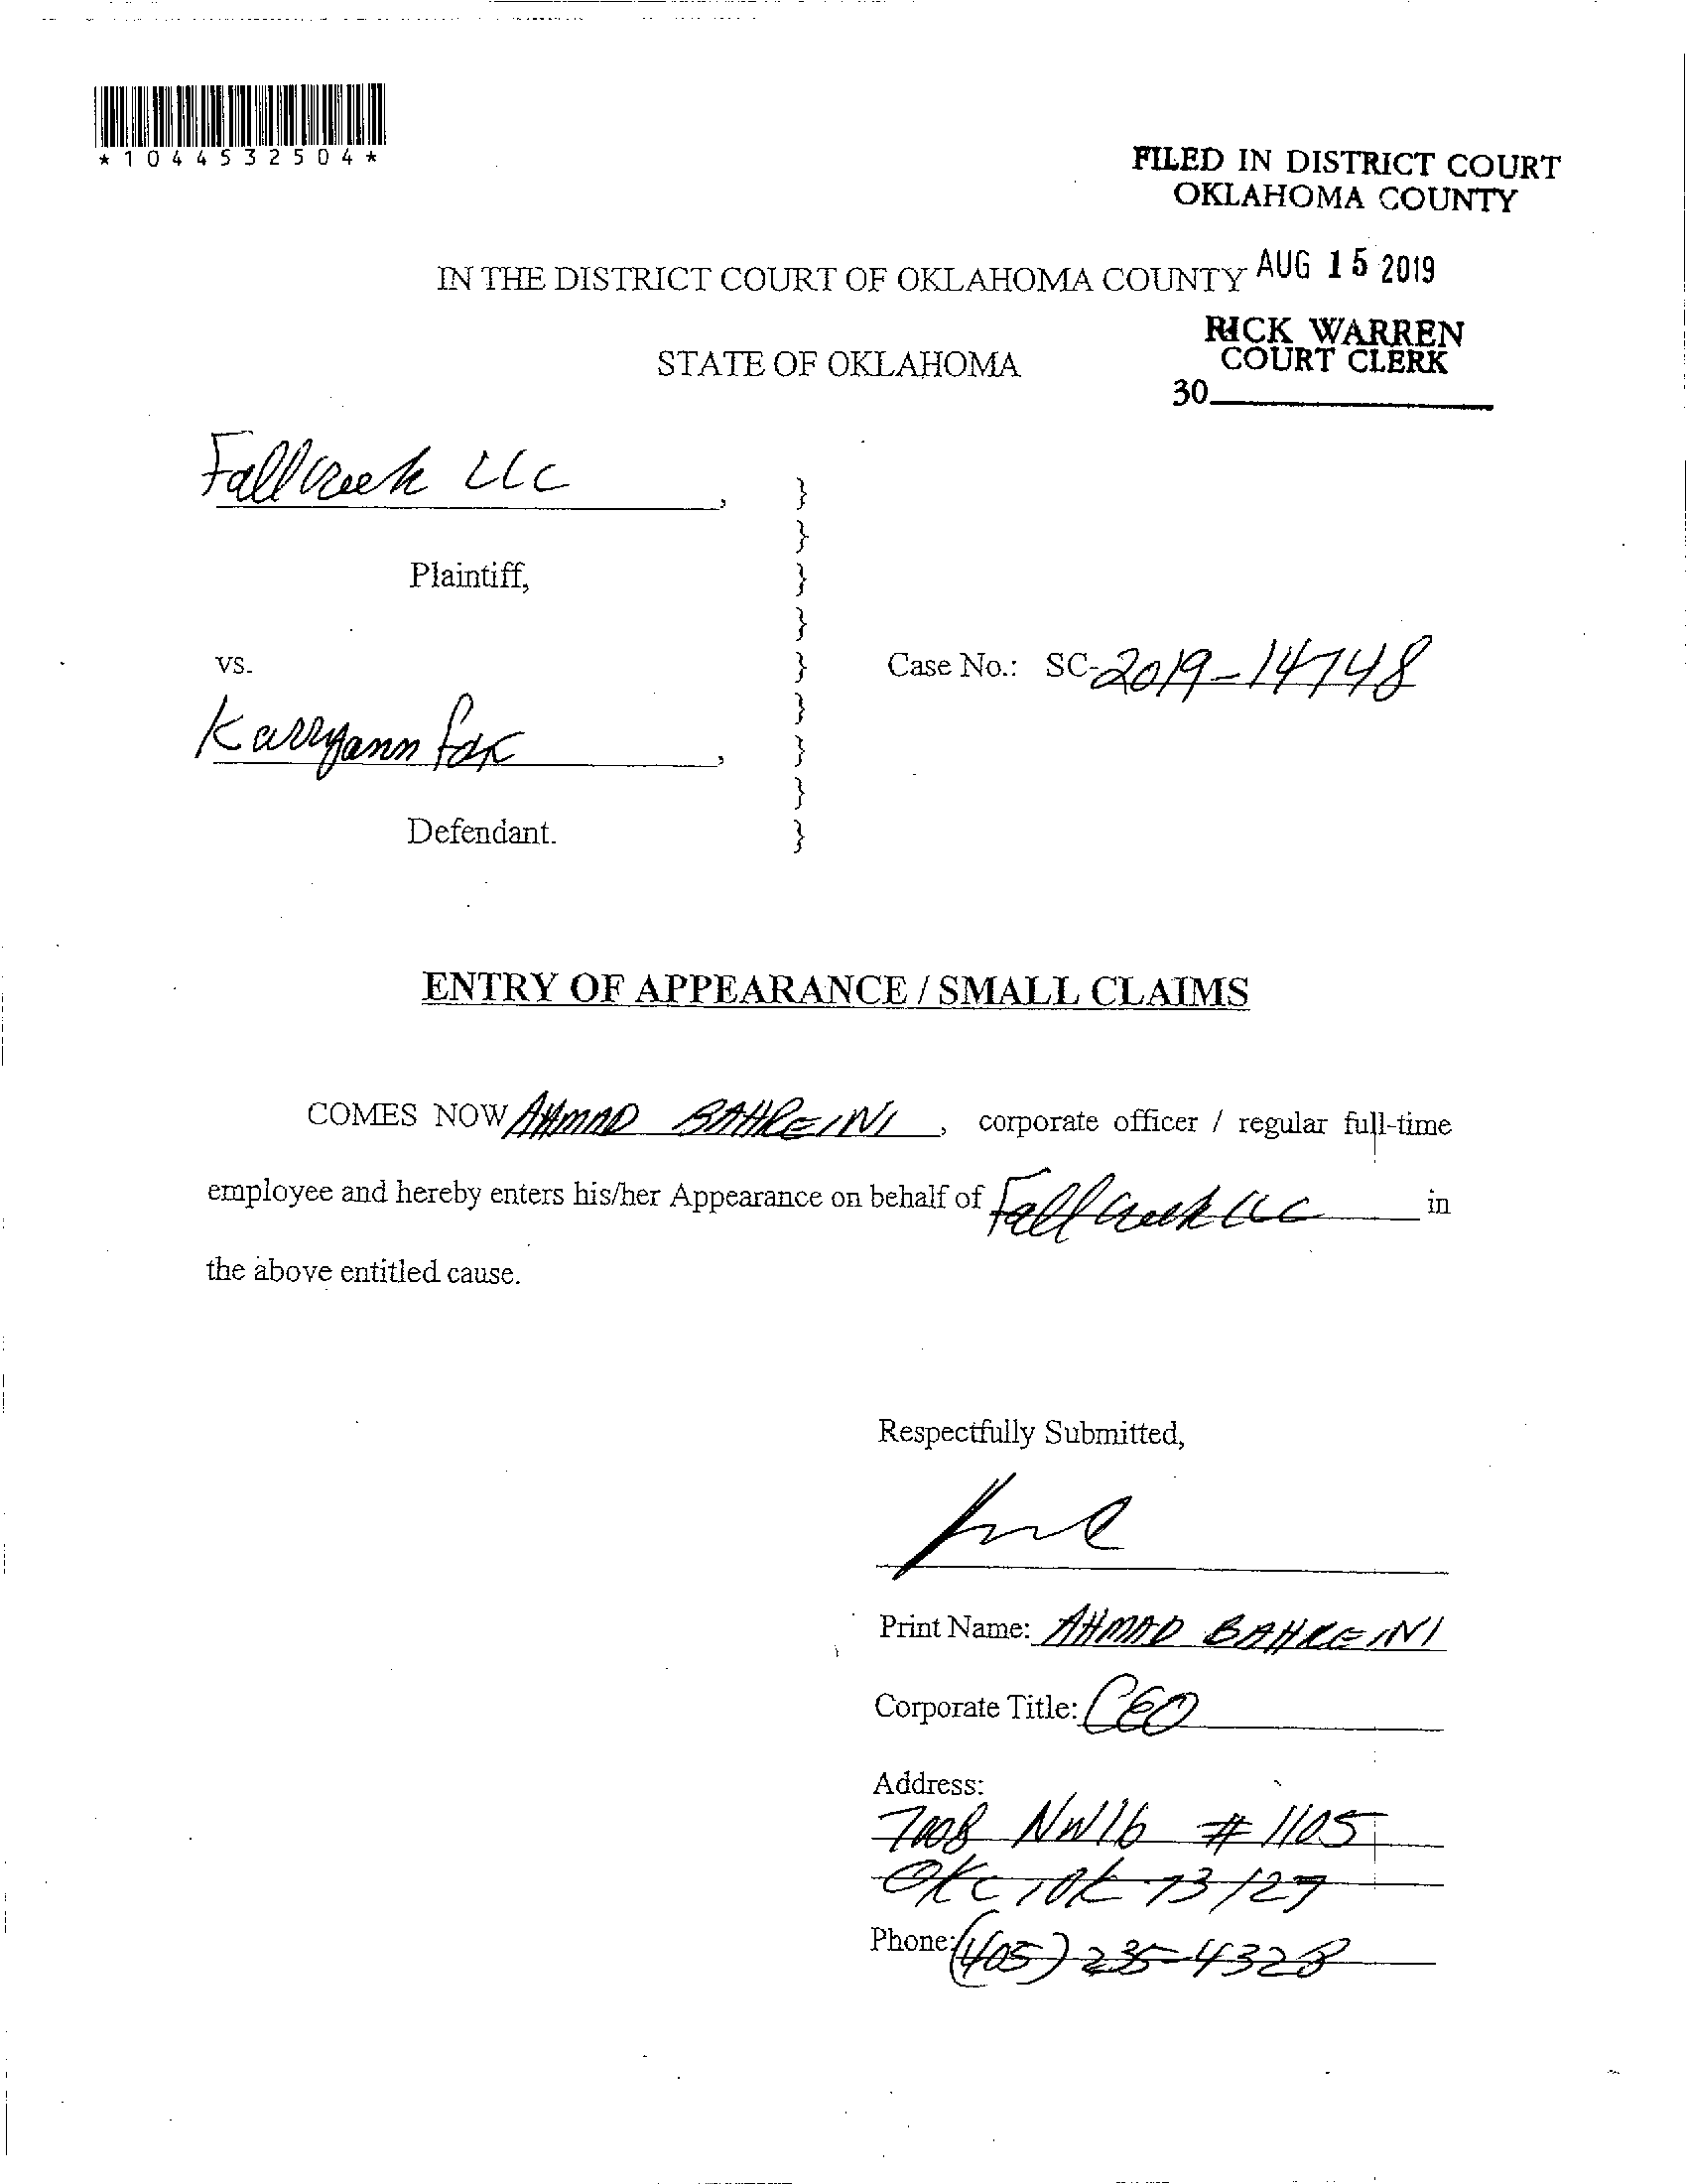 *1044532504*
FILED IN DISTRICT COURT
OKLAHOMA COUNTY
IN THE DISTRICT COURT OF OKLAHOMA COUNTY AUG 15 2019
RICK WARREN
STATE OF OKLAHOMA
COURT CLERK
30
Fallcreek LLC,
}
}
Plaintiff, }
}
vs. } Case No.: SC-2019-14748
}
Karryann Fox, }
}
Defendant. }
ENTRY OF APPEARANCE / SMALL CLAIMS
COMES NOW AHMAD BAHREINI, corporate officer / regular full-time
employee and hereby enters his/her Appearance on behalf of Fallcreek LLC in
the above entitled cause.
Respectfully Submitted,
Print Name: AHMAD BAHREINI
Corporate Title: CEO
Address:
7008 NW16 # 1105
OKC, OK 73127
Phone: (405) 235-4328